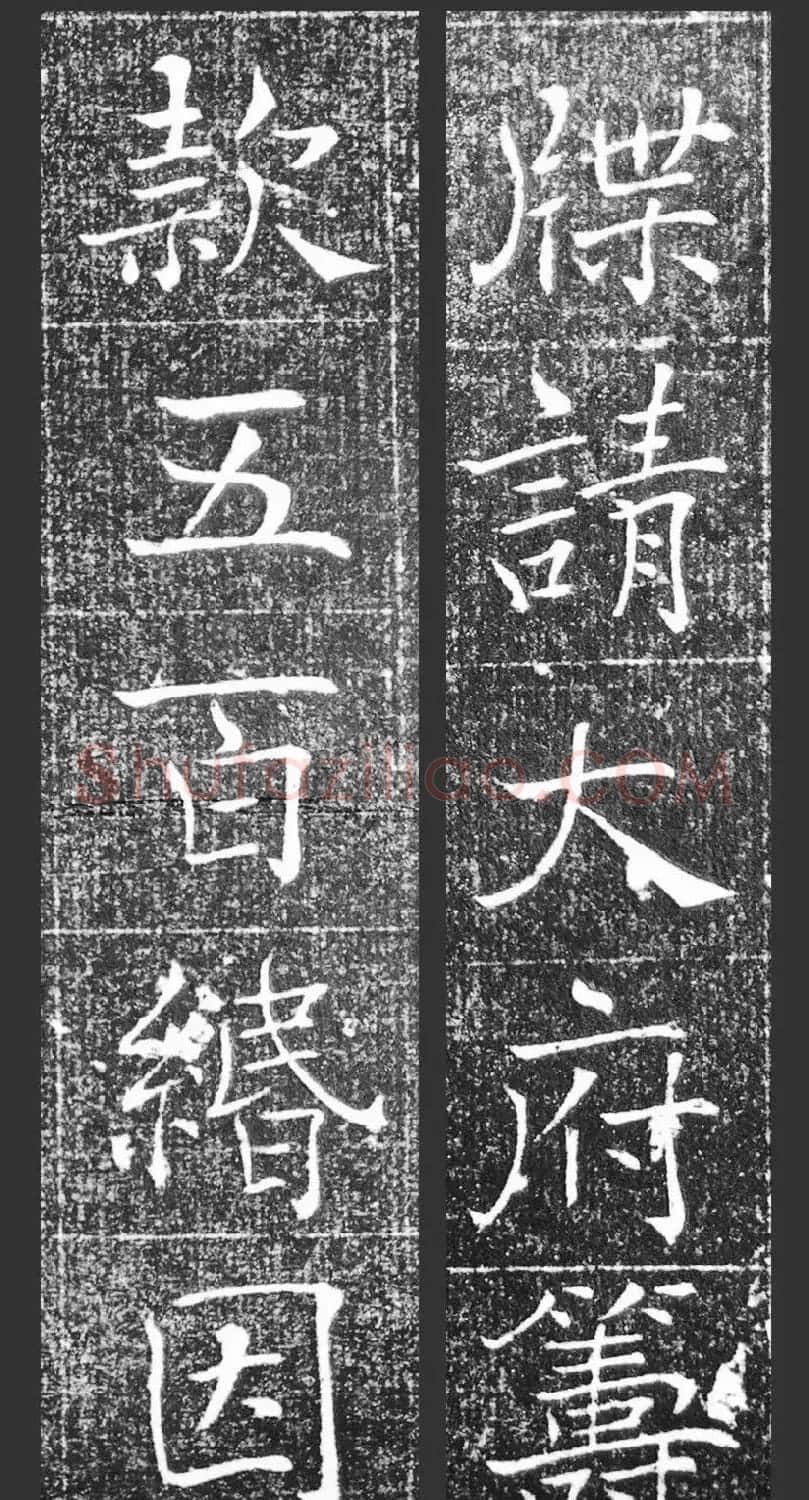 牒請大府籌
款五百緡因
Shufaziliao.COM